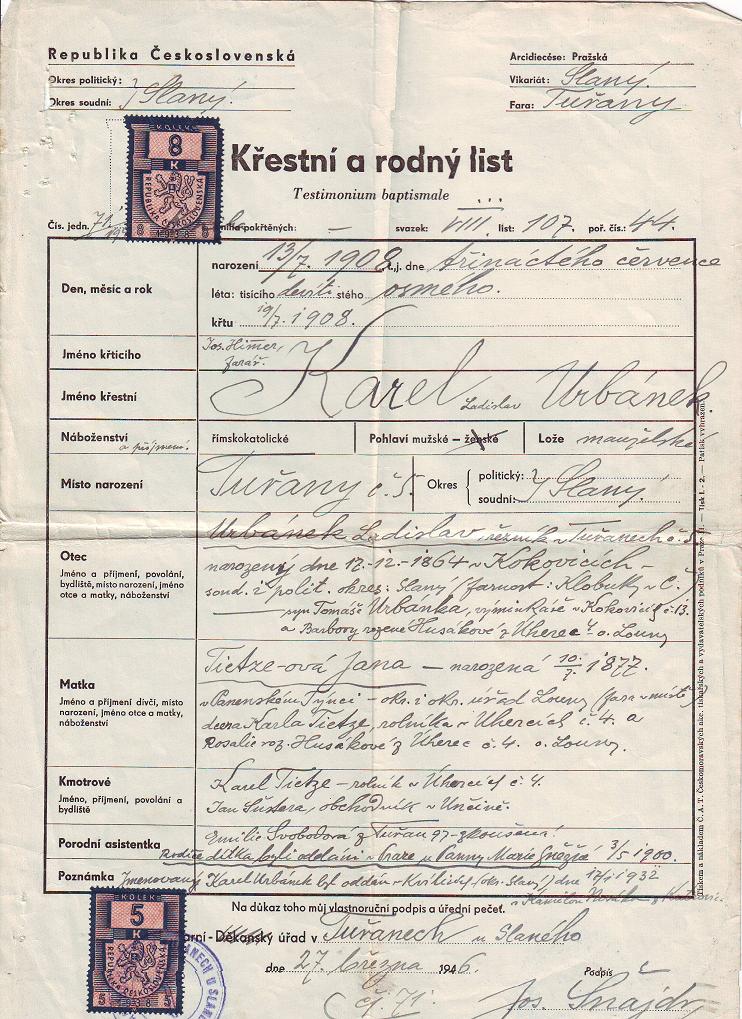 Republika Československá
Arcidiecése: Pražská
Okres politický: } Slaný.
Vikariát: Slaný.
Okres soudní:
Fara: Tuřany
KOLEK
8
K
REPUBLIKA ČESKOSLOVENSKÁ
8 1938 8
Křestní a rodný list
Testimonium baptismale
Čís. jedn. 71 pokřtěných: – svazek: VIII. list: 107. poř. čís.: 44.
Den, měsíc a rok
narození 13/7. 1908 t.j. dne třináctého července
léta: tisícího devíti stého osmého.
křtu 19/7. 1908.
Jméno křticího
Jos. Himer, farář.
Jméno křestní
Karel Ladislav Urbánek
a příjmení.
Náboženství
římskokatolické
Pohlaví mužské – ženské
Lože manželské
Místo narození
Tuřany č. 5.
Okres { politický: } Slaný.
soudní:
Otec
Jméno a příjmení, povolání, bydliště, místo narození, jméno otce a matky, náboženství
Urbánek Ladislav, řezník v Tuřanech č. 5
narozený dne 17.-12.-1864 v Kokovicích –
soud. i polit. okres: Slaný (farnost: Klobuky v Č.)
syn Tomáše Urbánka, výminkáře v Kokovicích č. 13.
a Barbory rozené Husákové z Úherec o. Louny
Matka
Jméno a příjmení dívčí, místo narození, jméno otce a matky, náboženství
Tietze-ová Jana – narozená 10/7. 1877.
v Panenském Týnci – okr. i okr. úřad Louny (fara v místě)
dcera Karla Tietze, rolníka v Úhercích č. 4. a
Rosalie roz. Husákové z Úherec č. 4. o. Louny.
Kmotrové
Jméno, příjmení, povolání a bydliště
Karel Tietze – rolník v Úhercích č. 4.
Jan Šustera, obchodník v
Porodní asistentka
Emilie Svobodová z Tuřan 97 – zkoušená.
Rodiče dítka byli oddáni v Praze u Panny Marie Sněžné 3/5 1900.
Poznámka
Jmenovaný Karel Urbánek byl oddán v (okr. Slaný) dne 17/1 1932
s
Tiskem a nákladem C. A. T. Českomoravských akc. tiskařských a vydavatelských podniků v Praze — Tisk I. - 2. — Patisk vyhrazen.
Na důkaz toho můj vlastnoruční podpis a úřední pečeť.
Děkanský úřad v Tuřanech u Slaného
dne 27. března 1946.
Podpis
čj. 71.
Jos. Šnajdr
KOLEK
5
K
REPUBLIKA ČESKOSLOVENSKÁ
5 1938 5
ANECH U SLAN